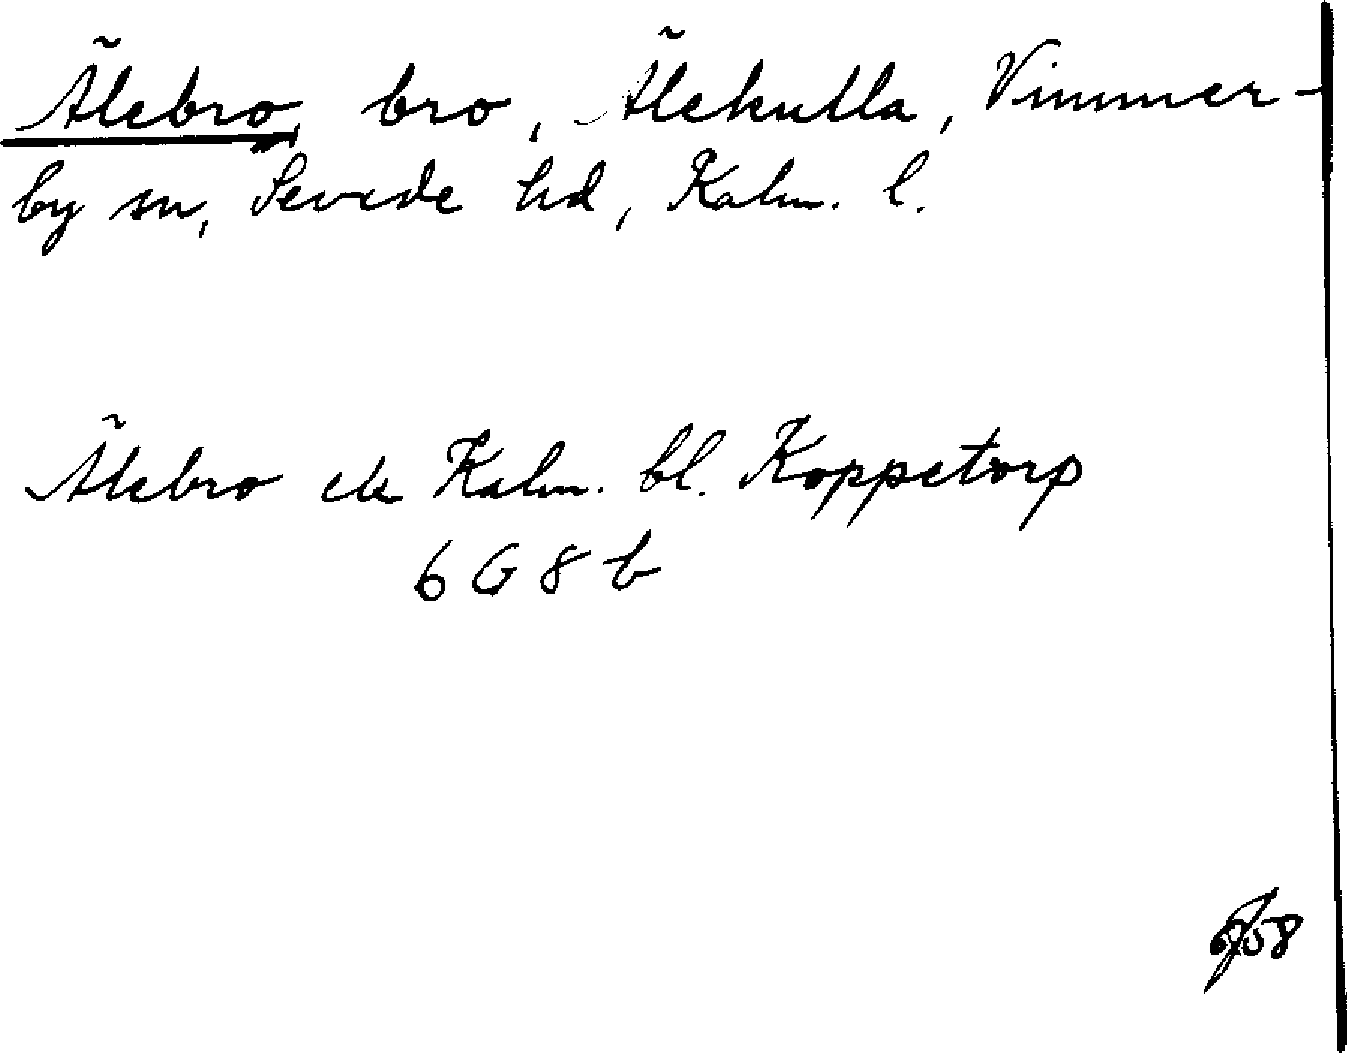 Älebro, bro, Älekulla, Vimmer-
by sn, Sevede hd, Kalm. l.
Älebro ek Kalm. bl. Koppetorp
6 G 8 b